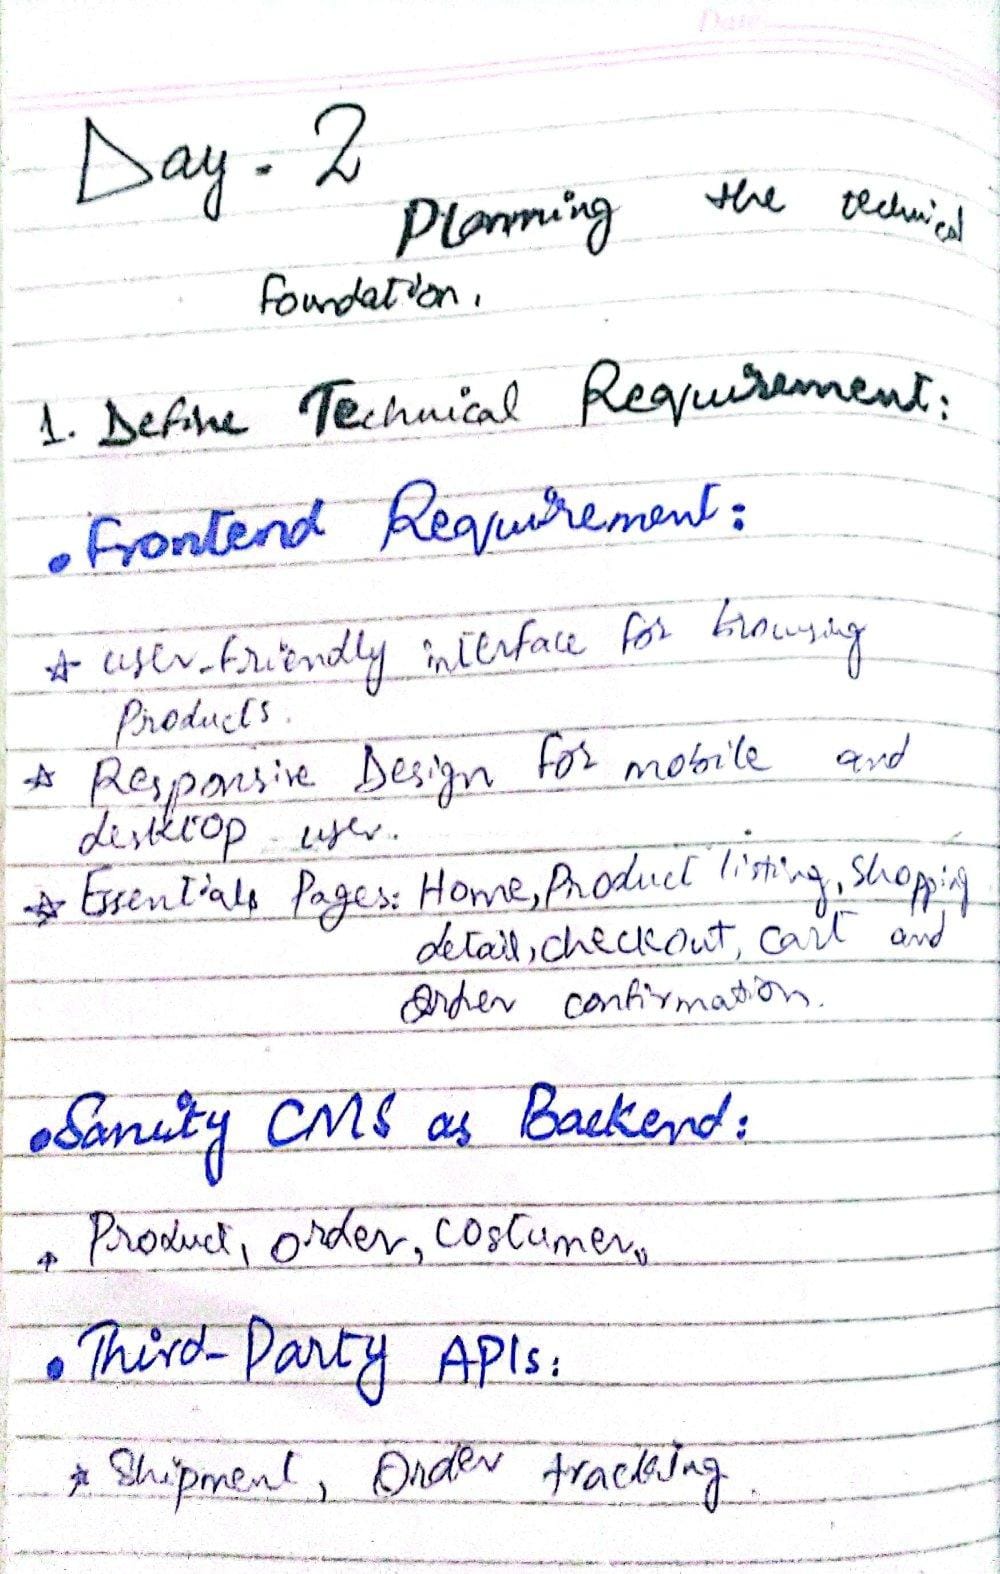 Date
Day - 2
Planning the technical
foundation.
1. Define Technical Requirement:
• Frontend Requirement:
☆ user-friendly interface for browsing
Products.
☆ Responsive Design for mobile and
desktop user.
☆ Essentials Pages: Home, Product listing, Shopping
detail, checkout, cart and
Order confirmation.
• Sanity CMS as Backend:
* Product, order, costumer.
• Third-Party APIs:
* Shipment, Order tracking.